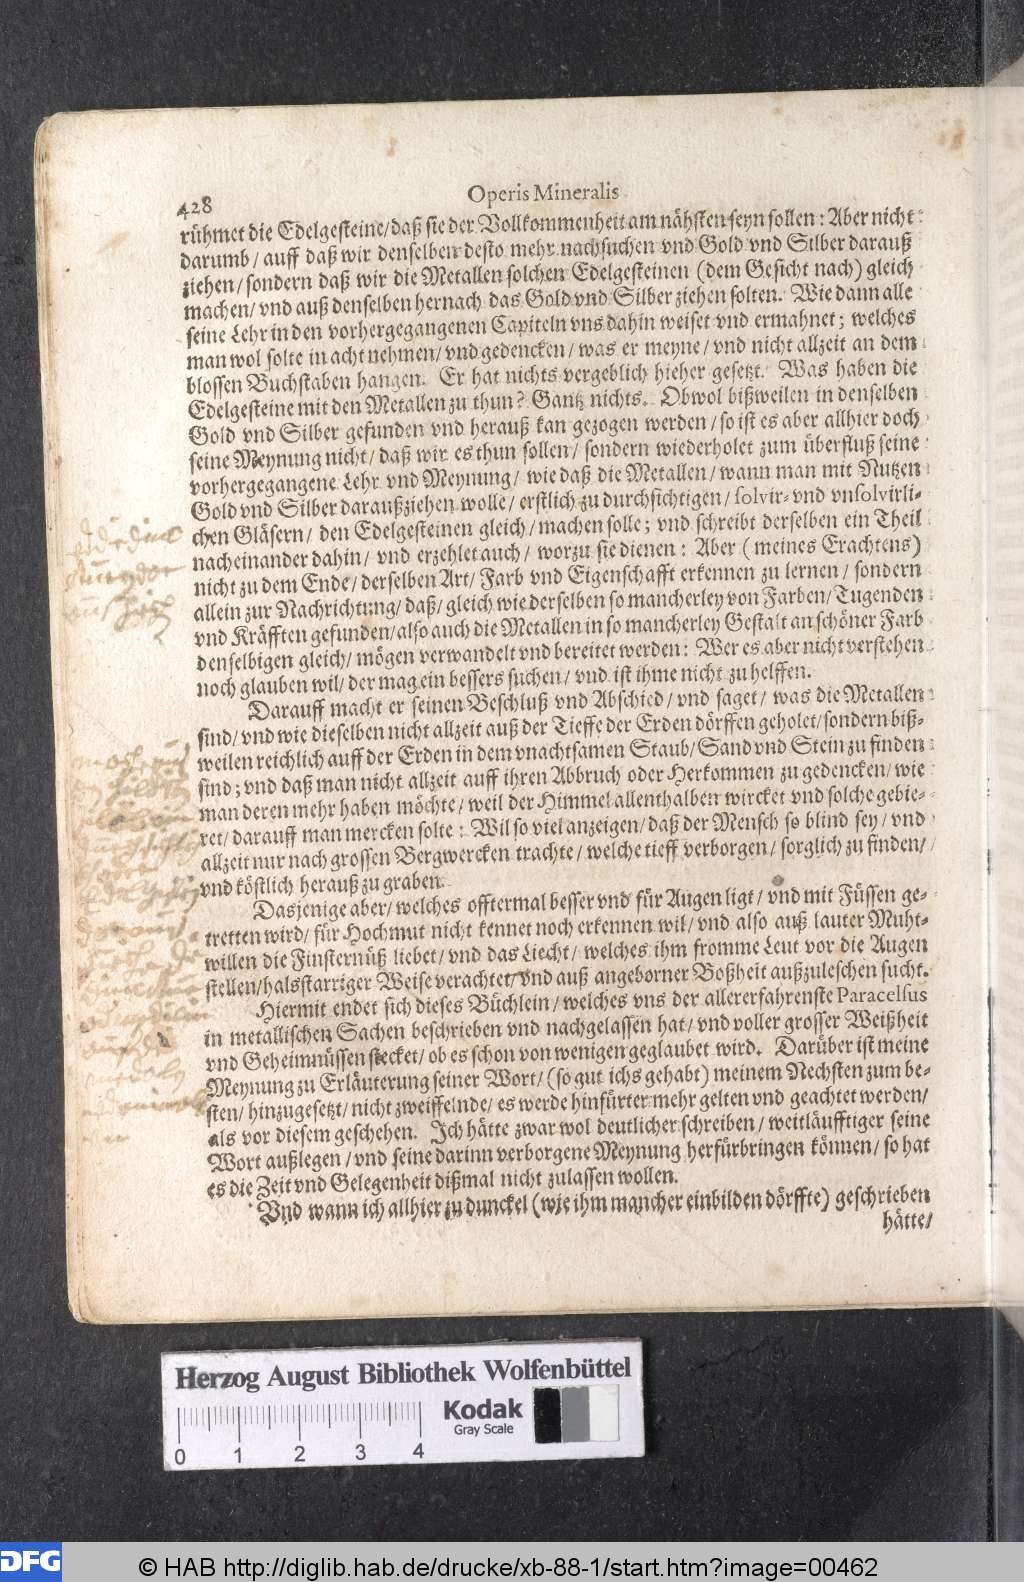 428
Operis Mineralis
rühmet die Edelgesteine/daß sie der Vollkommenheit am nähsten seyn sollen: Aber nicht
darumb/ auff daß wir denselben desto mehr nachsuchen vnd Gold vnd Silber darauß
ziehen/ sondern daß wir die Metallen solchen Edelgesteinen (dem Gesicht nach) gleich
machen/ vnd auß denselben hernach das Gold vnd Silber ziehen solten. Wie dann alle
seine Lehr in den vorhergegangenen Capiteln vns dahin weiset vnd ermahnet; welches
man wol solte in acht nehmen/ vnd gedencken/ was er meyne/ vnd nicht allzeit an dem
blossen Buchstaben hangen. Er hat nichts vergeblich hieher gesetzt. Was haben die
Edelgesteine mit den Metallen zu thun? Gantz nichts. Obwol bißweilen in denselben
Gold vnd Silber gefunden vnd herauß kan gezogen werden/ so ist es aber allhier doch
seine Meynung nicht/ daß wir es thun sollen/ sondern wiederholet zum überfluß seine
vorhergegangene Lehr vnd Meynung/ wie daß die Metallen/ wann man mit Nutzen
Gold vnd Silber daraußziehen wolle/ erstlich zu durchsichtigen/ solvir- vnd vnsolvirli-
chen Gläsern/ den Edelgesteinen gleich/ machen solle; vnd schreibt derselben ein Theil
nacheinander dahin/ vnd erzehlet auch/ worzu sie dienen: Aber (meines Erachtens)
nicht zu dem Ende/ derselben Art/ Farb vnd Eigenschafft erkennen zu lernen/ sondern
allein zur Nachrichtung/ daß/ gleich wie derselben so mancherley von Farben/ Tugenden
vnd Kräfften gefunden/ also auch die Metallen in so mancherley Gestalt an schöner Farb
denselbigen gleich/ mögen verwandelt vnd bereitet werden: Wer es aber nicht verstehen
noch glauben wil/ der mag ein bessers suchen/ vnd ist ihme nicht zu helffen.
Darauff macht er seinen Beschluß vnd Abschied/ vnd saget/ was die Metallen
sind/ vnd wie dieselben nicht allzeit auß der Tieffe der Erden dörffen geholet/ sondern biß-
weilen reichlich auff der Erden in dem vnachtsamen Staub/ Sand vnd Stein zu finden
sind; vnd daß man nicht allzeit auff ihren Abbruch oder Herkommen zu gedencken/ wie
man deren mehr haben möchte/ weil der Himmel allenthalben wircket vnd solche gebie-
ret/ darauff man mercken solte: Wil so viel anzeigen/ daß der Mensch so blind sey/ vnd
allzeit nur nach grossen Bergwercken trachte/ welche tieff verborgen/ sorglich zu finden/
vnd köstlich herauß zu graben.
Dasjenige aber/ welches offtermal besser vnd für Augen ligt/ vnd mit Füssen ge-
tretten wird/ für Hochmut nicht kennet noch erkennen wil/ vnd also auß lauter Muht-
willen die Finsternüß liebet/ vnd das Liecht/ welches ihm fromme Leut vor die Augen
stellen/ halsstarriger Weise verachtet/ vnd auß angeborner Boßheit außzuleschen sucht.
Hiermit endet sich dieses Büchlein/ welches vns der allererfahrenste Paracelsus
in metallischen Sachen beschrieben vnd nachgelassen hat/ vnd voller grosser Weißheit
vnd Geheimnüssen stecket/ ob es schon von wenigen geglaubet wird. Darüber ist meine
Meynung zu Erläuterung seiner Wort/ (so gut ichs gehabt) meinem Nechsten zum be-
sten/ hinzugesetzt/ nicht zweiffelnde/ es werde hinfürter mehr gelten vnd geachtet werden/
als vor diesem geschehen. Ich hätte zwar wol deutlicher schreiben/ weitläufftiger seine
Wort außlegen/ vnd seine darinn verborgene Meynung herfürbringen können/ so hat
es die Zeit vnd Gelegenheit dißmal nicht zulassen wollen.
Vnd wann ich allhier zu dunckel (wie ihm mancher einbilden dörffte) geschrieben
hätte/
Herzog August Bibliothek Wolfenbüttel
Kodak
Gray Scale
0 1 2 3 4
DFG
© HAB http://diglib.hab.de/drucke/xb-88-1/start.htm?image=00462